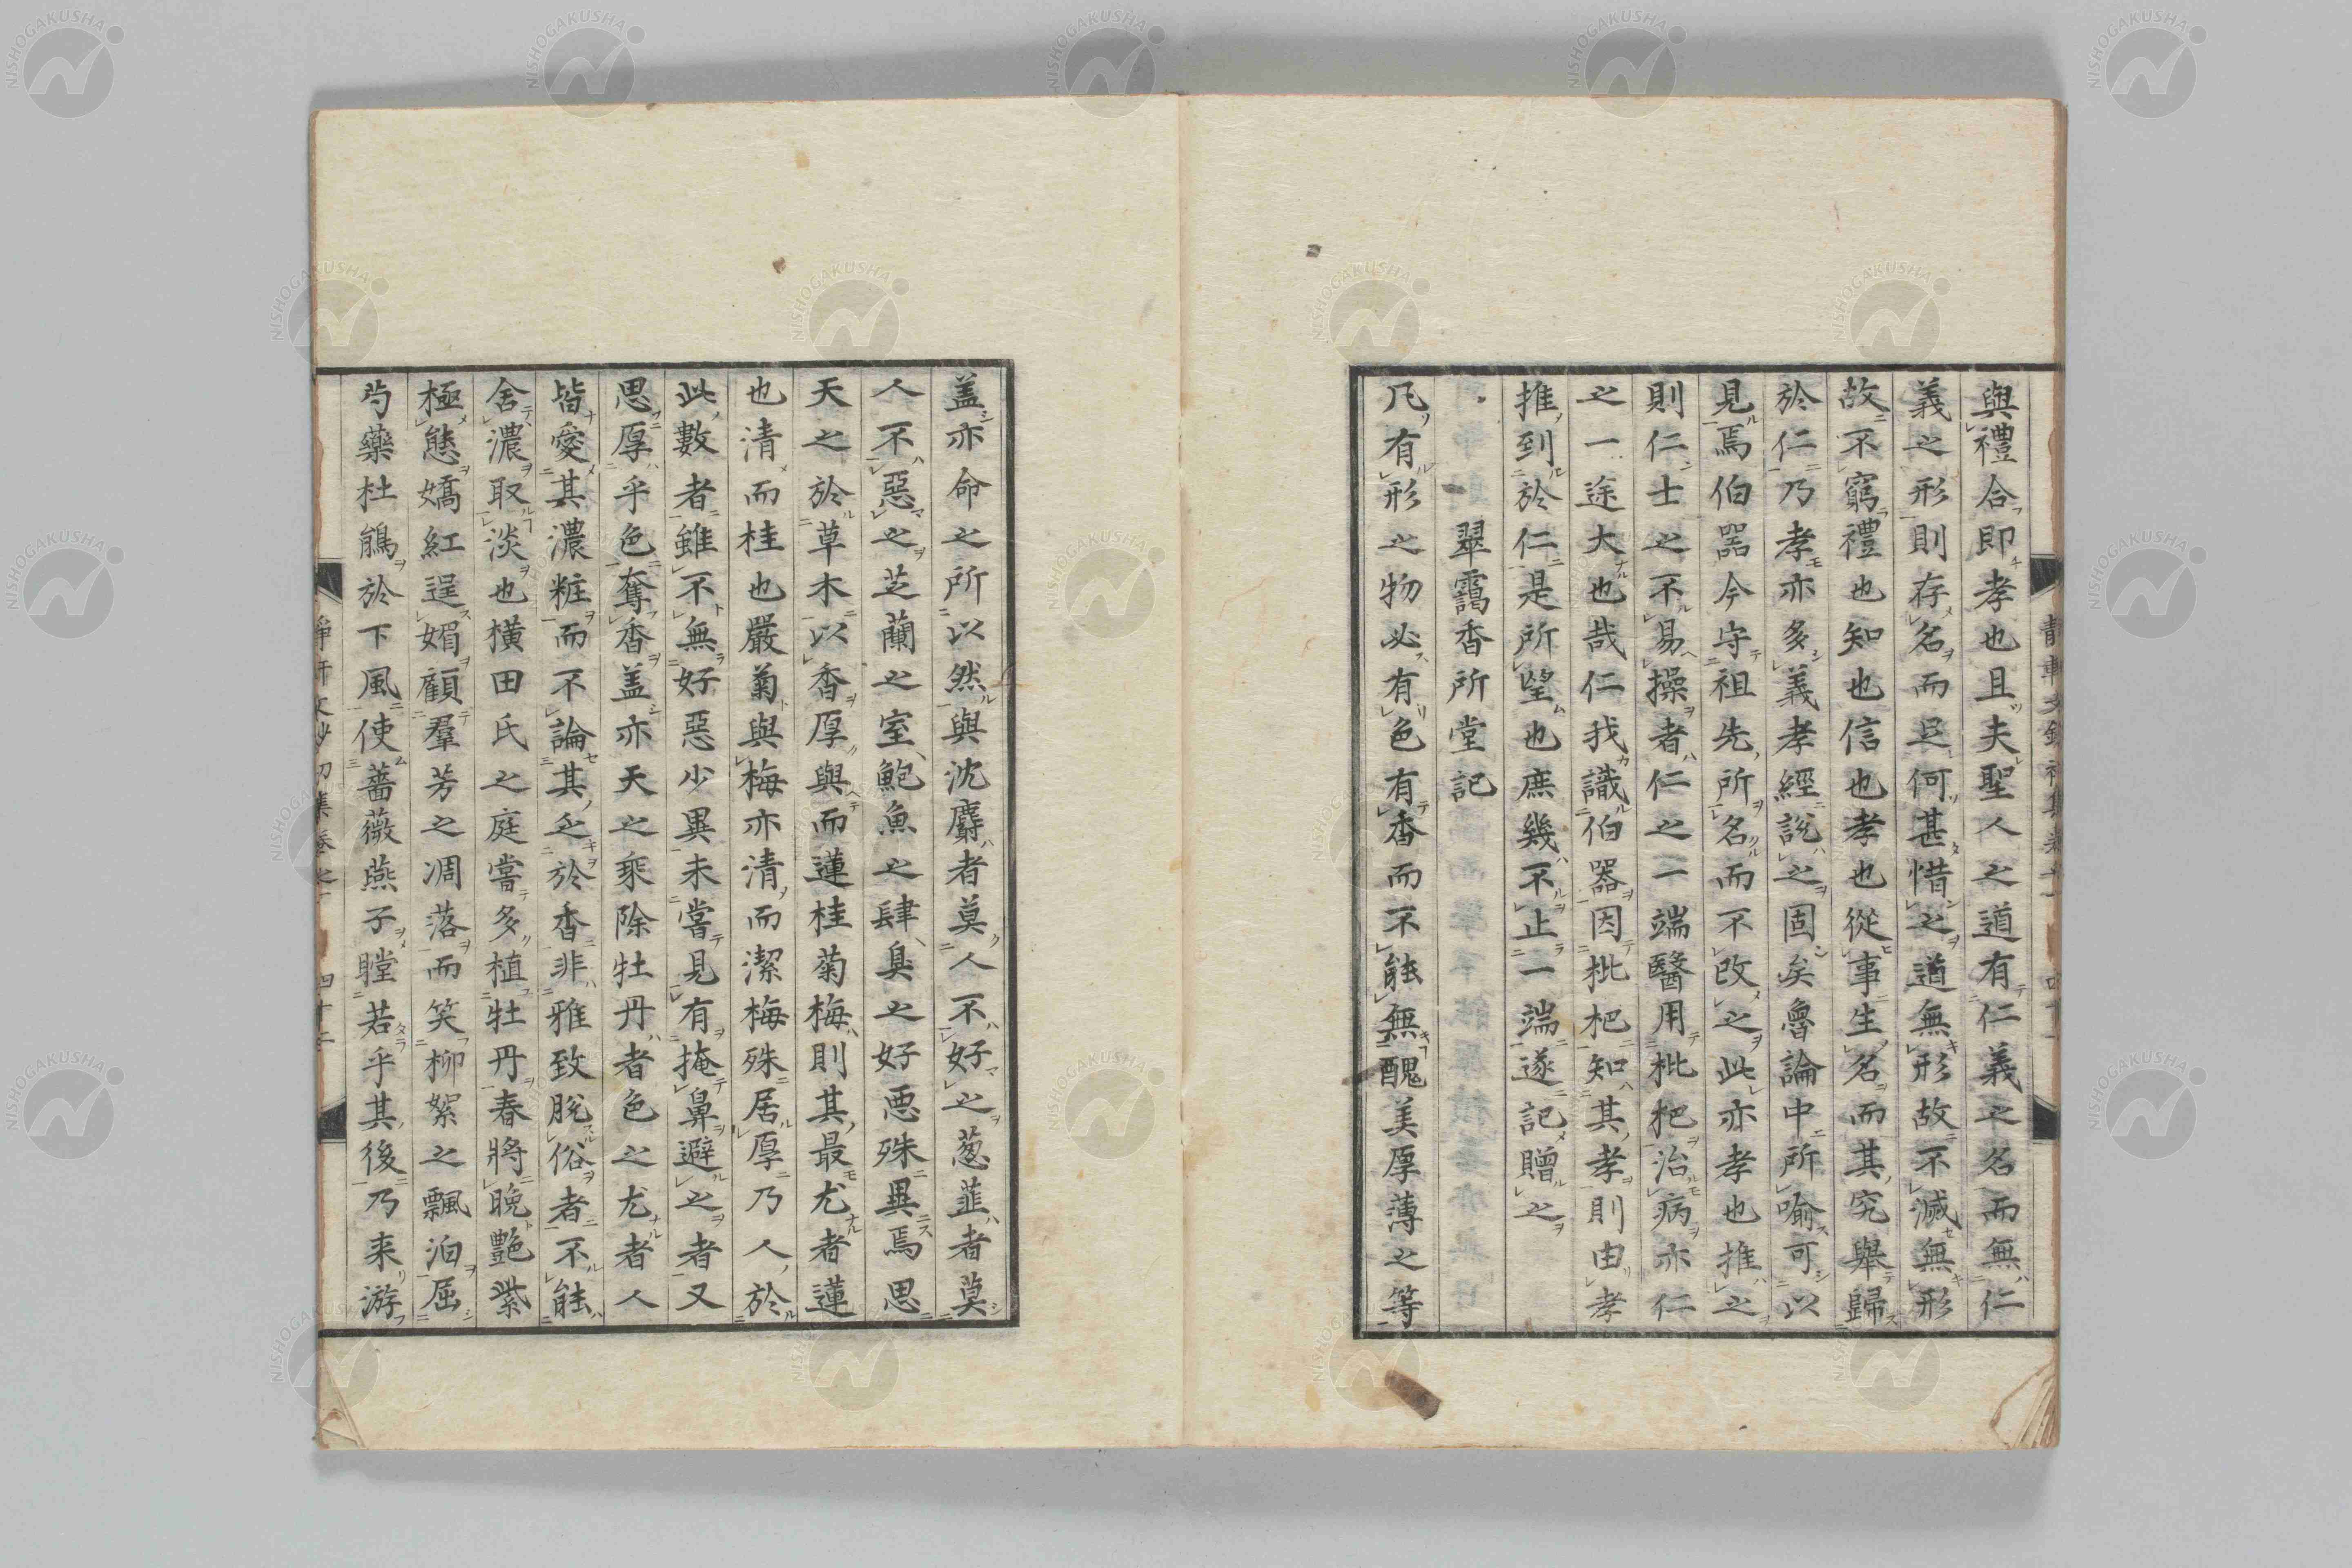 與禮合即孝也且夫聖人之道有仁義之名而無仁
義之形則存名而足何甚惜之道無形故不滅無形
故不窮禮也知也信也孝也從事生名而其究舉歸
於仁乃孝亦多義孝經說之固矣魯論中所喻可以
見焉伯器今守祖先所名而不改之此亦孝也推之
則仁士之不易操者仁之一端醫用枇杷治病亦仁
之一途大也哉仁我識伯器因枇杷知其孝則由孝
推到於仁是所望也庶幾不止一端遂記贈之
翠靄香所堂記
凡有形之物必有色有香而不能無醜美厚薄之等
盖亦命之所以然與沈麝者莫人不好之葱韮者莫
人不惡之芝蘭之室鮑魚之肆臭之好悪殊異焉思
天之於草木以香厚與而蓮桂菊梅則其最尤者蓮
也清而桂也嚴菊與梅亦清而潔梅殊居厚乃人於
此數者雖不無好惡少異未嘗見有掩鼻避之者又
思厚乎色奪香盖亦天之乘除牡丹者色之尤者人
皆愛其濃粧而不論其乏於香非雅致脫俗者不能
舍濃取淡也横田氏之庭嘗多植牡丹春將晚艶紫
極態嬌紅逞媚顧羣芳之凋落而笑柳絮之飄泊屈
芍藥杜鵑於下風使薔薇燕子瞠若乎其後乃来游
NISHOGAKUSHA